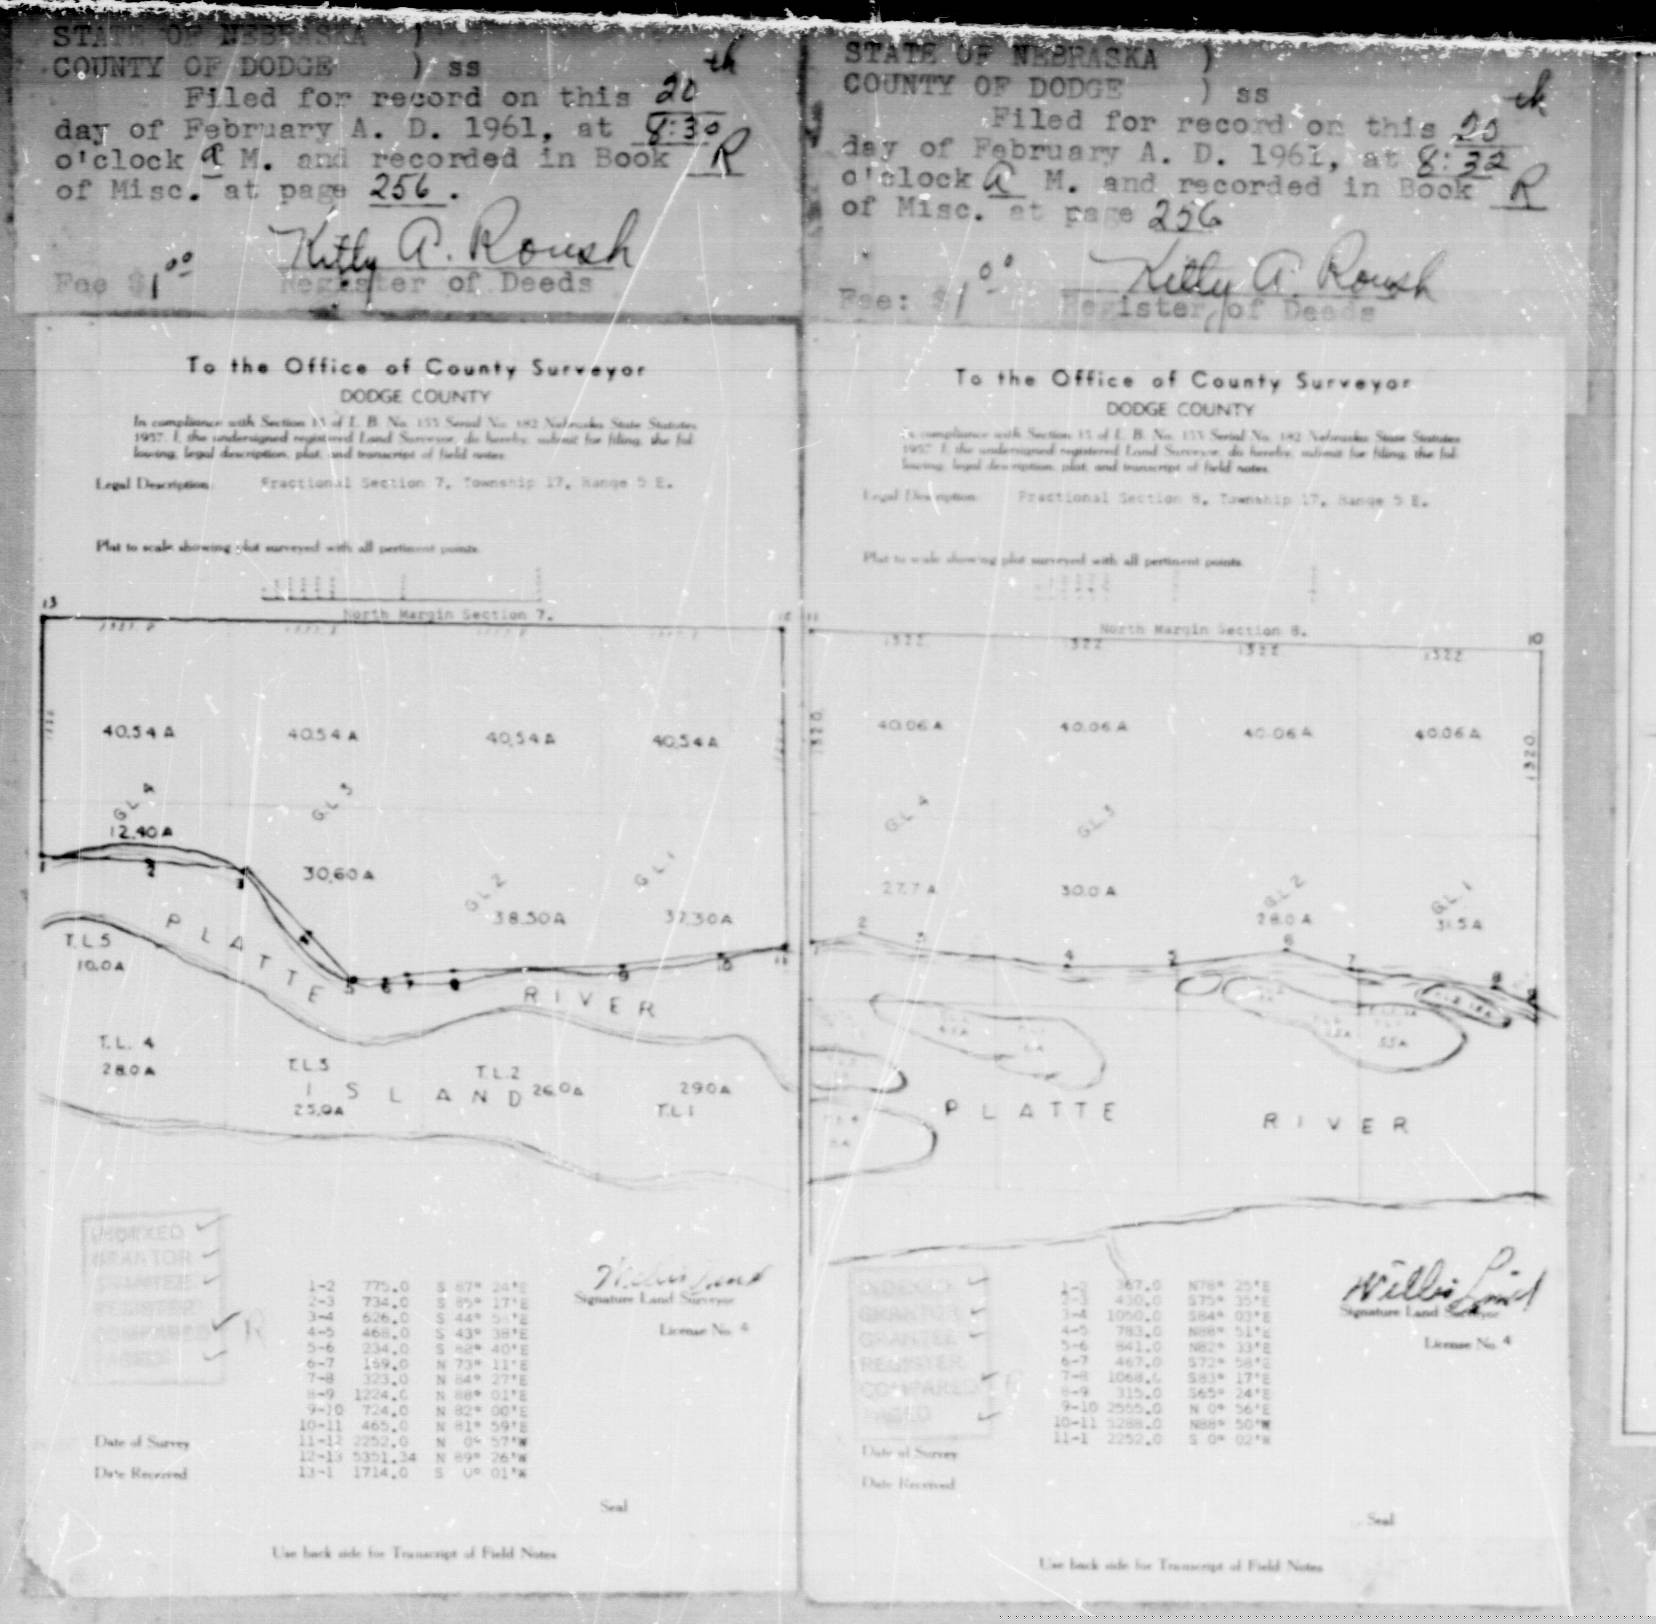 STATE OF NEBRASKA )
COUNTY OF DODGE ) ss
Filed for record on this 20th
day of February A. D. 1961, at 8:30
o'clock A M. and recorded in Book R
of Misc. at page 256.
Kitly A. Roush
Fee $1.00 Register of Deeds
To the Office of County Surveyor
DODGE COUNTY
In compliance with Section 15 of L. B. No. 155 Serial No. 182 Nebraska State Statutes
1957. I, the undersigned registered Land Surveyor, do hereby submit for filing, the fol-
lowing, legal description, plat, and transcript of field notes.
Legal Description: Fractional Section 7, Township 17, Range 5 E.
Plat to scale showing plot surveyed with all pertinent points.
North Margin Section 7.
13
40.54 A 40.54 A 40.54 A 40.54 A
G.L. 4 G.L. 3
12.40 A
30.60 A
G.L. 2 G.L. 1
38.50 A 37.30 A
1 2 5 6 7 8 9 10 11
PLATTE RIVER
T.L.5
10.0 A
T.L. 4
28.0 A
T.L.3 T.L.2
ISLAND 26.0 A 29.0 A
25.0 A T.L.1
INDEXED
GRANTOR
GRANTEE
REGISTER
COMPARED R
PAGED
1-2 775.0 S 87° 24'E
2-3 734.0 S 85° 17'E
3-4 626.0 S 44° 'E
4-5 468.0 S 43° 38'E
5-6 234.0 S 82° 40'E
6-7 169.0 N 73° 11'E
7-8 323.0 N 84° 27'E
8-9 1224.0 N 88° 01'E
9-10 724.0 N 82° 00'E
10-11 465.0 N 81° 59'E
11-12 2252.0 N 0° 57'W
12-13 5351.34 N 89° 26'W
13-1 1714.0 S 0° 01'W
Willis Lind
Signature Land Surveyor
License No. 4
Date of Survey
Date Received
Seal
Use back side for Transcript of Field Notes
STATE OF NEBRASKA )
COUNTY OF DODGE ) ss
Filed for record on this 20th
day of February A. D. 1961, at 8:32
o'clock A M. and recorded in Book R
of Misc. at page 256
Kitly A. Roush
Fee: $1.00 Register of Deeds
To the Office of County Surveyor
DODGE COUNTY
In compliance with Section 15 of L. B. No. 155 Serial No. 182 Nebraska State Statutes
1957. I, the undersigned registered Land Surveyor, do hereby submit for filing, the fol-
lowing, legal description, plat, and transcript of field notes.
Legal Description: Fractional Section 8, Township 17, Range 5 E.
Plat to scale showing plot surveyed with all pertinent points.
North Margin Section 8.
11 10
1322 1322 1322 1322
1320 1320
40.06 A 40.06 A 40.06 A 40.06 A
G.L. 4 G.L. 3
27.7 A 30.0 A
G.L. 2 G.L. 1
28.0 A 31.5 A
1 2 3 4 5 6 7 8 9
5.5 A
PLATTE RIVER
INDEXED
GRANTOR
GRANTEE
REGISTER
COMPARED
PAGED
1-2 367.0 N78° 25'E
2-3 430.0 S75° 35'E
3-4 1050.0 S84° 03'E
4-5 783.0 N88° 51'E
5-6 841.0 N82° 33'E
6-7 467.0 S72° 58'E
7-8 1068.0 S83° 17'E
8-9 315.0 S65° 24'E
9-10 2555.0 N 0° 56'E
10-11 5288.0 N88° 50'W
11-1 2252.0 S 0° 02'W
Willis Lind
Signature Land Surveyor
License No. 4
Date of Survey
Date Received
Seal
Use back side for Transcript of Field Notes